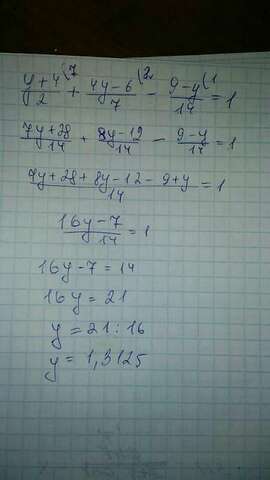 (y+4)/2 (7 + (4y-6)/7 (2 - (9-y)/14 (1 = 1
(7y+28)/14 + (8y-12)/14 - (9-y)/14 = 1
(7y+28+8y-12-9+y)/14 = 1
(16y-7)/14 = 1
16y-7=14
16y=21
y=21:16
y=1,3125